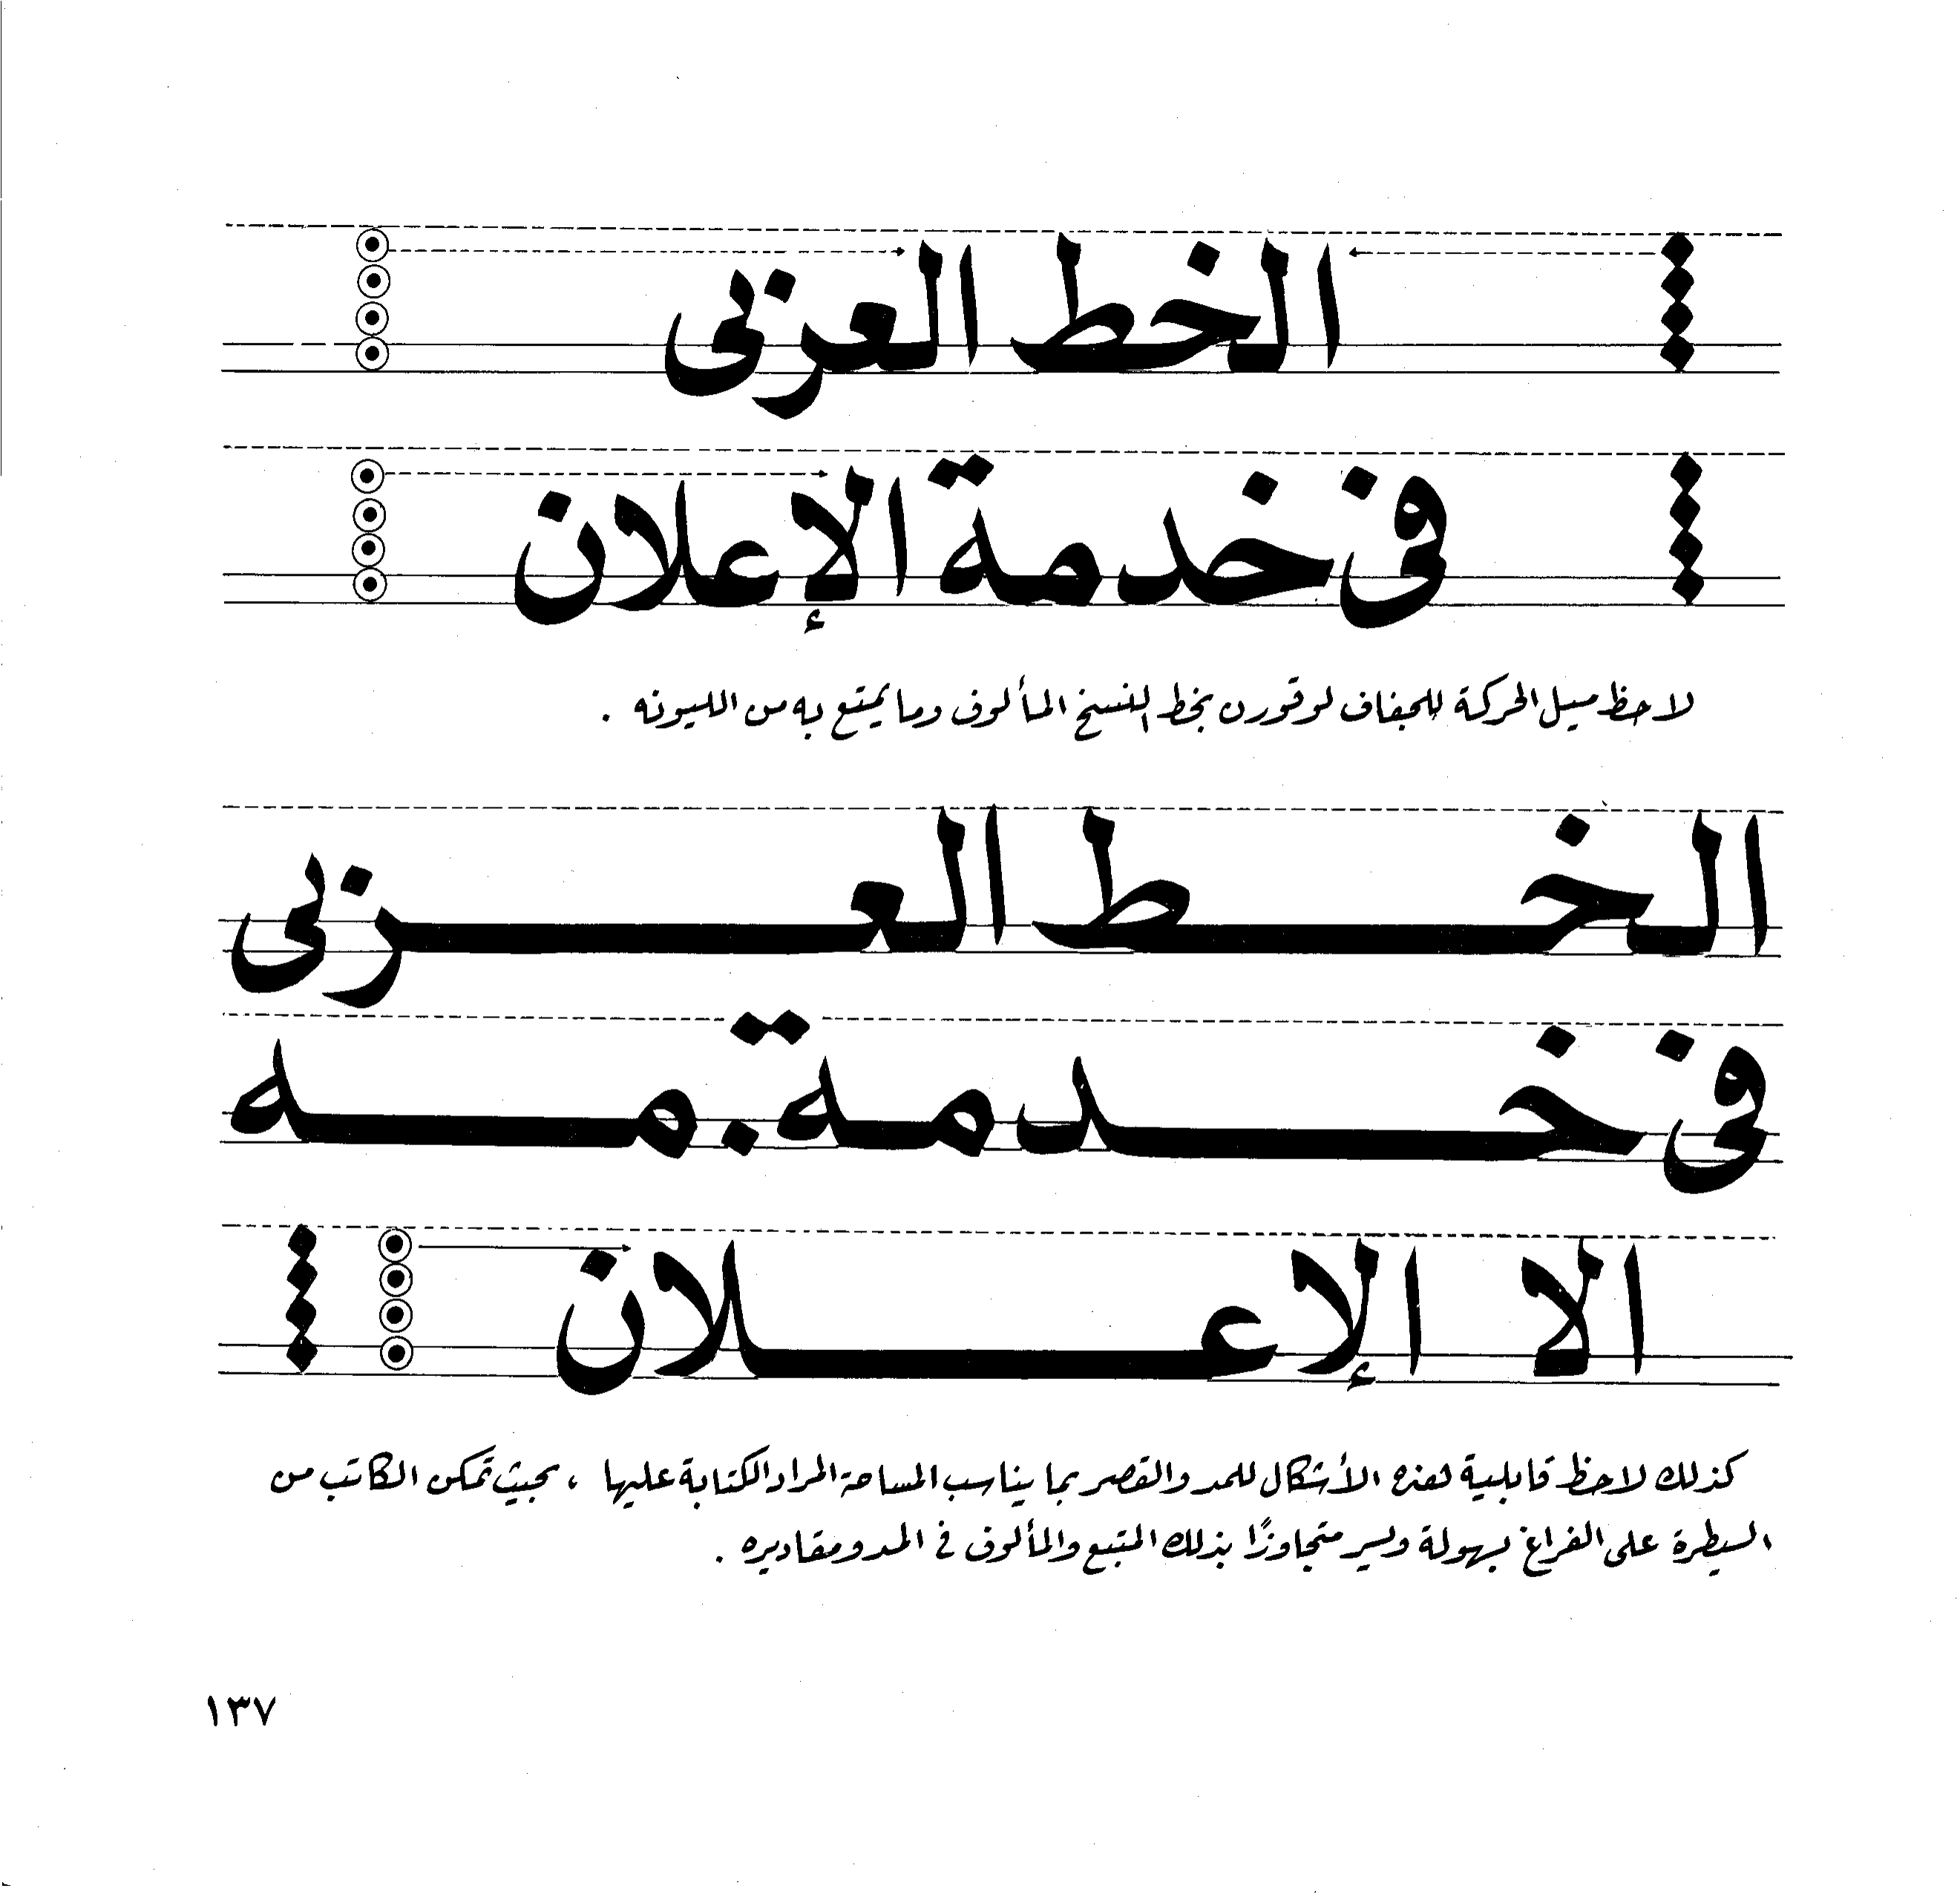 الخط العربى
فى خدمة الإعلان
لاحظ ميل الحركة للجفاف لو قورن بخط النسخ المألوف وما يتمتع به من الليونه .
الخـــــط العـــــربى
فى خـــــدمة . مـــــه
الا الإعـــــلان
كذلك لاحظ قابلية هذه الأشكال للمد والقصر بما يناسب المساحة المراد الكتابة عليها ، بحيث تمكن الكاتب من
السيطرة على الفراغ بسهولة ويسر متجاوزًا بذلك المتبع والمألوف فى المد ومقاديره .
١٣٧